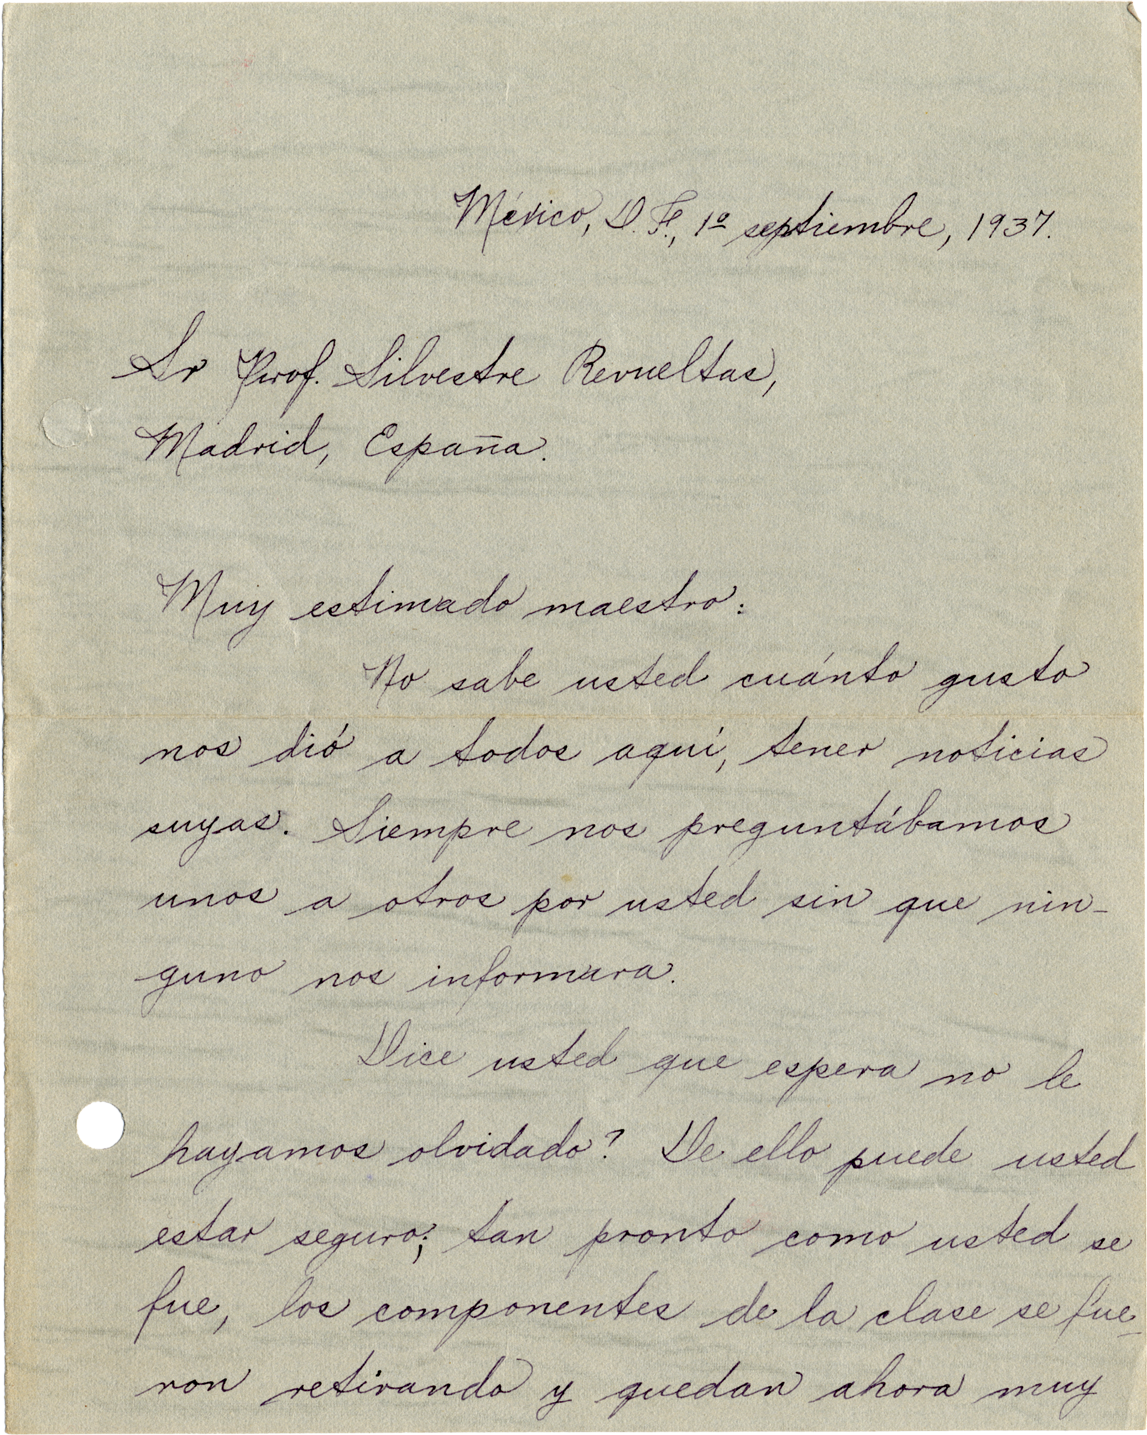 México, D. F., 1º septiembre, 1937.
Sr Prof. Silvestre Revueltas,
Madrid, España.
Muy estimado maestro:
No sabe usted cuánto gusto
nos dió a todos aquí, tener noticias
suyas. Siempre nos preguntábamos
unos a otros por usted sin que nin-
guno nos informara.
Dice usted que espera no le
hayamos olvidado? De ello puede usted
estar seguro; tan pronto como usted se
fue, los componentes de la clase se fue-
ron retirando y quedan ahora muy